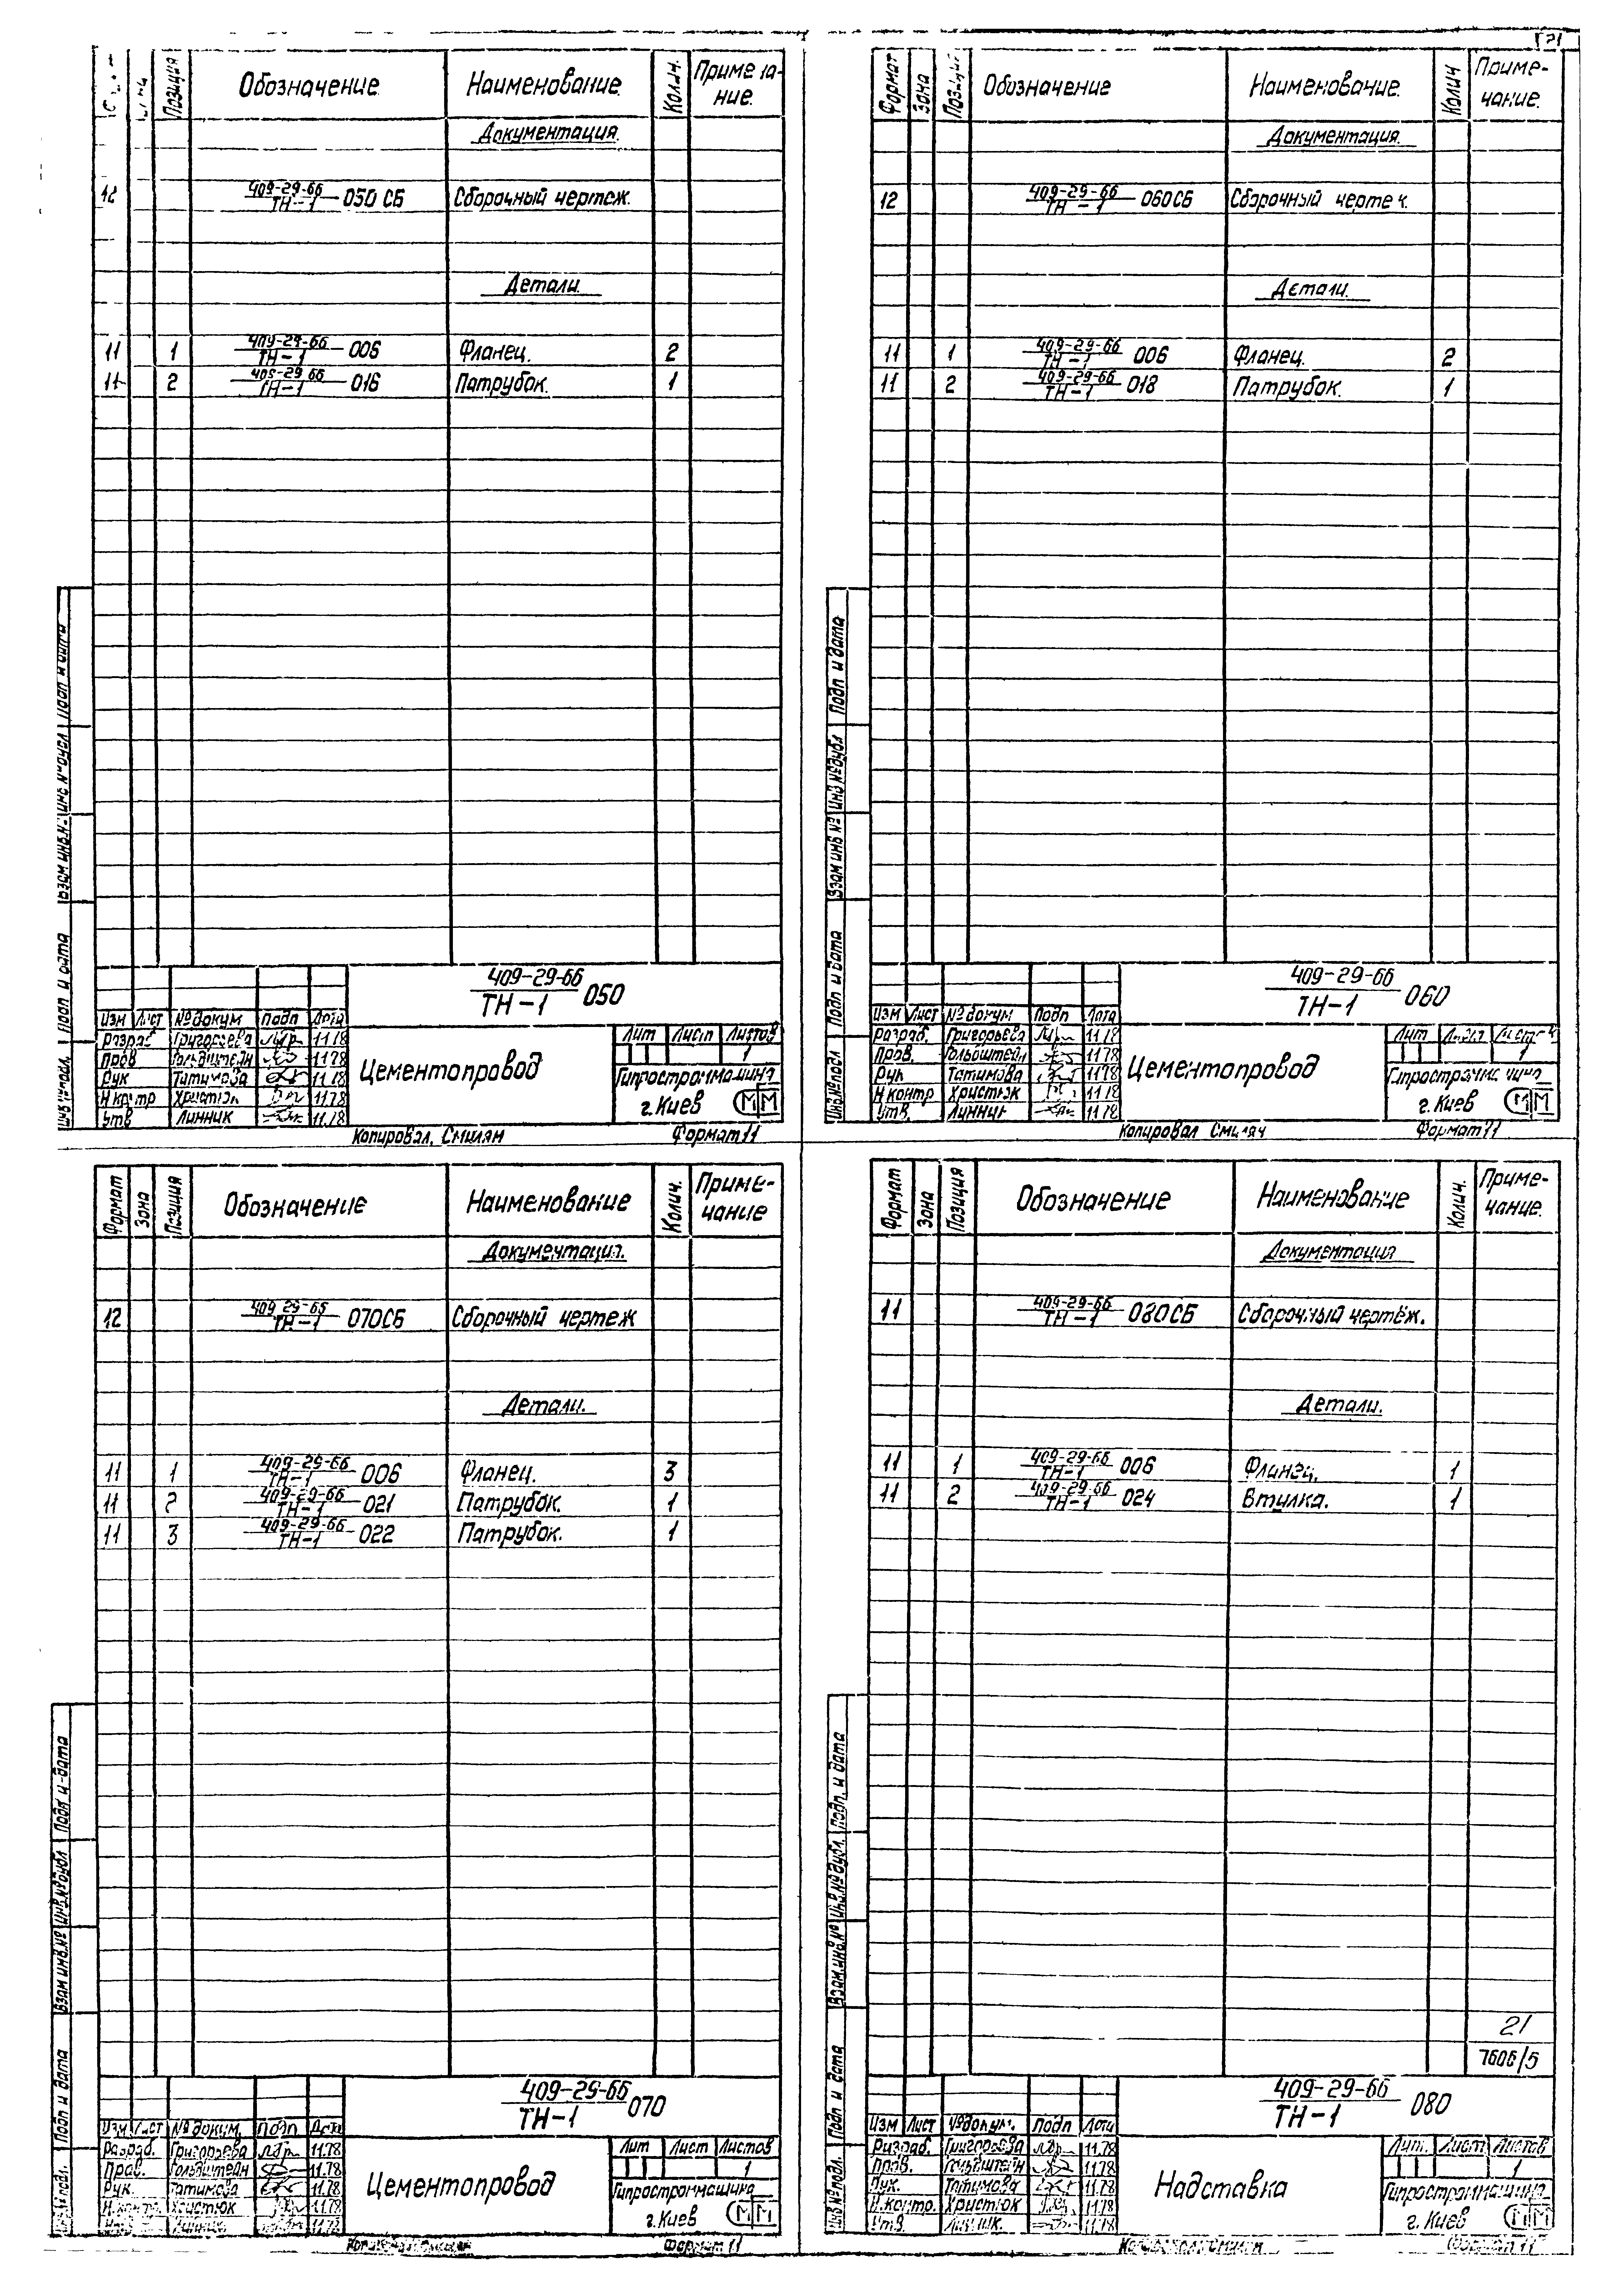 Позиция Обозначение Наименование. Примечание.
Документация.
12 409-29-66/ТН-1 050 СБ Сборочный чертеж.
Детали.
11 1 409-29-66/ТН-1 006 Фланец. 2
11 2 409-29-66/ТН-1 016 Патрубок. 1
409-29-66/ТН-1 050
Изм Лист № докум Подп Дата
Разраб Григорьева 11.78
Пров Гольдштейн 11.78
Рук Татимова 11.78
Н контр Христюк 11.78
Утв Линник 11.78
Цементопровод
Лит Лист Листов
1
Гипростроммашина
г. Киев
Копировал. Смилян Формат 11
21
Формат Зона Позиция Обозначение Наименование. Колич Приме-
чание.
Документация.
12 409-29-66/ТН-1 060СБ Сборочный чертеж.
Детали.
11 1 409-29-66/ТН-1 006 Фланец. 2
11 2 409-29-66/ТН-1 018 Патрубок. 1
Подп и дата
Взам инв № Инв № дубл
Подп и дата
Инв № подл
409-29-66/ТН-1 060
Изм Лист № докум Подп Дата
Разраб. Григорьева 11.78
Пров. Гольдштейн 11.78
Рук Татимова 11.78
Н контр Христюк 11.78
Утв. Линник 11.78
Цементопровод
Лит Лист Листов
1
Гипростроммашина
г. Киев
Копировал Смилян Формат 11
Формат Зона Позиция Обозначение Наименование Колич. Приме-
чание
Документация.
12 409-29-66/ТН-1 070СБ Сборочный чертеж
Детали.
11 1 409-29-66/ТН-1 006 Фланец. 3
11 2 409-29-66/ТН-1 021 Патрубок. 1
11 3 409-29-66/ТН-1 022 Патрубок. 1
Подп и дата
Взам инв.№ Инв.№ дубл
Подп и дата
409-29-66/ТН-1 070
Изм Лист № докум. Подп Дата
Разраб. Григорьева 11.78
Пров. Гольдштейн 11.78
Рук. Татимова 11.78
Н.контр. Христюк 11.78
11.78
Цементопровод
Лит Лист Листов
1
Гипростроммашина
г. Киев
Формат 11
Формат Зона Позиция Обозначение Наименование Колич. Приме-
чание.
Документация
11 409-29-66/ТН-1 080СБ Сборочный чертёж.
Детали.
11 1 409-29-66/ТН-1 006 Фланец. 1
11 2 409-29-66/ТН-1 024 Втулка. 1
21
7606/5
Подп. и дата
Взам.инв.№ Инв.№ дубл.
Подп и дата
Инв № подл.
409-29-66/ТН-1 080
Изм Лист № докум. Подп Дата
Разраб. Григорьева 11.78
Пров. Гольдштейн 11.78
Рук. Татимова 11.78
Н.контр. Христюк 11.78
Утв. 11.78
Надставка
Лит. Лист Листов
1
Гипростроммашина
г. Киев
Формат 11